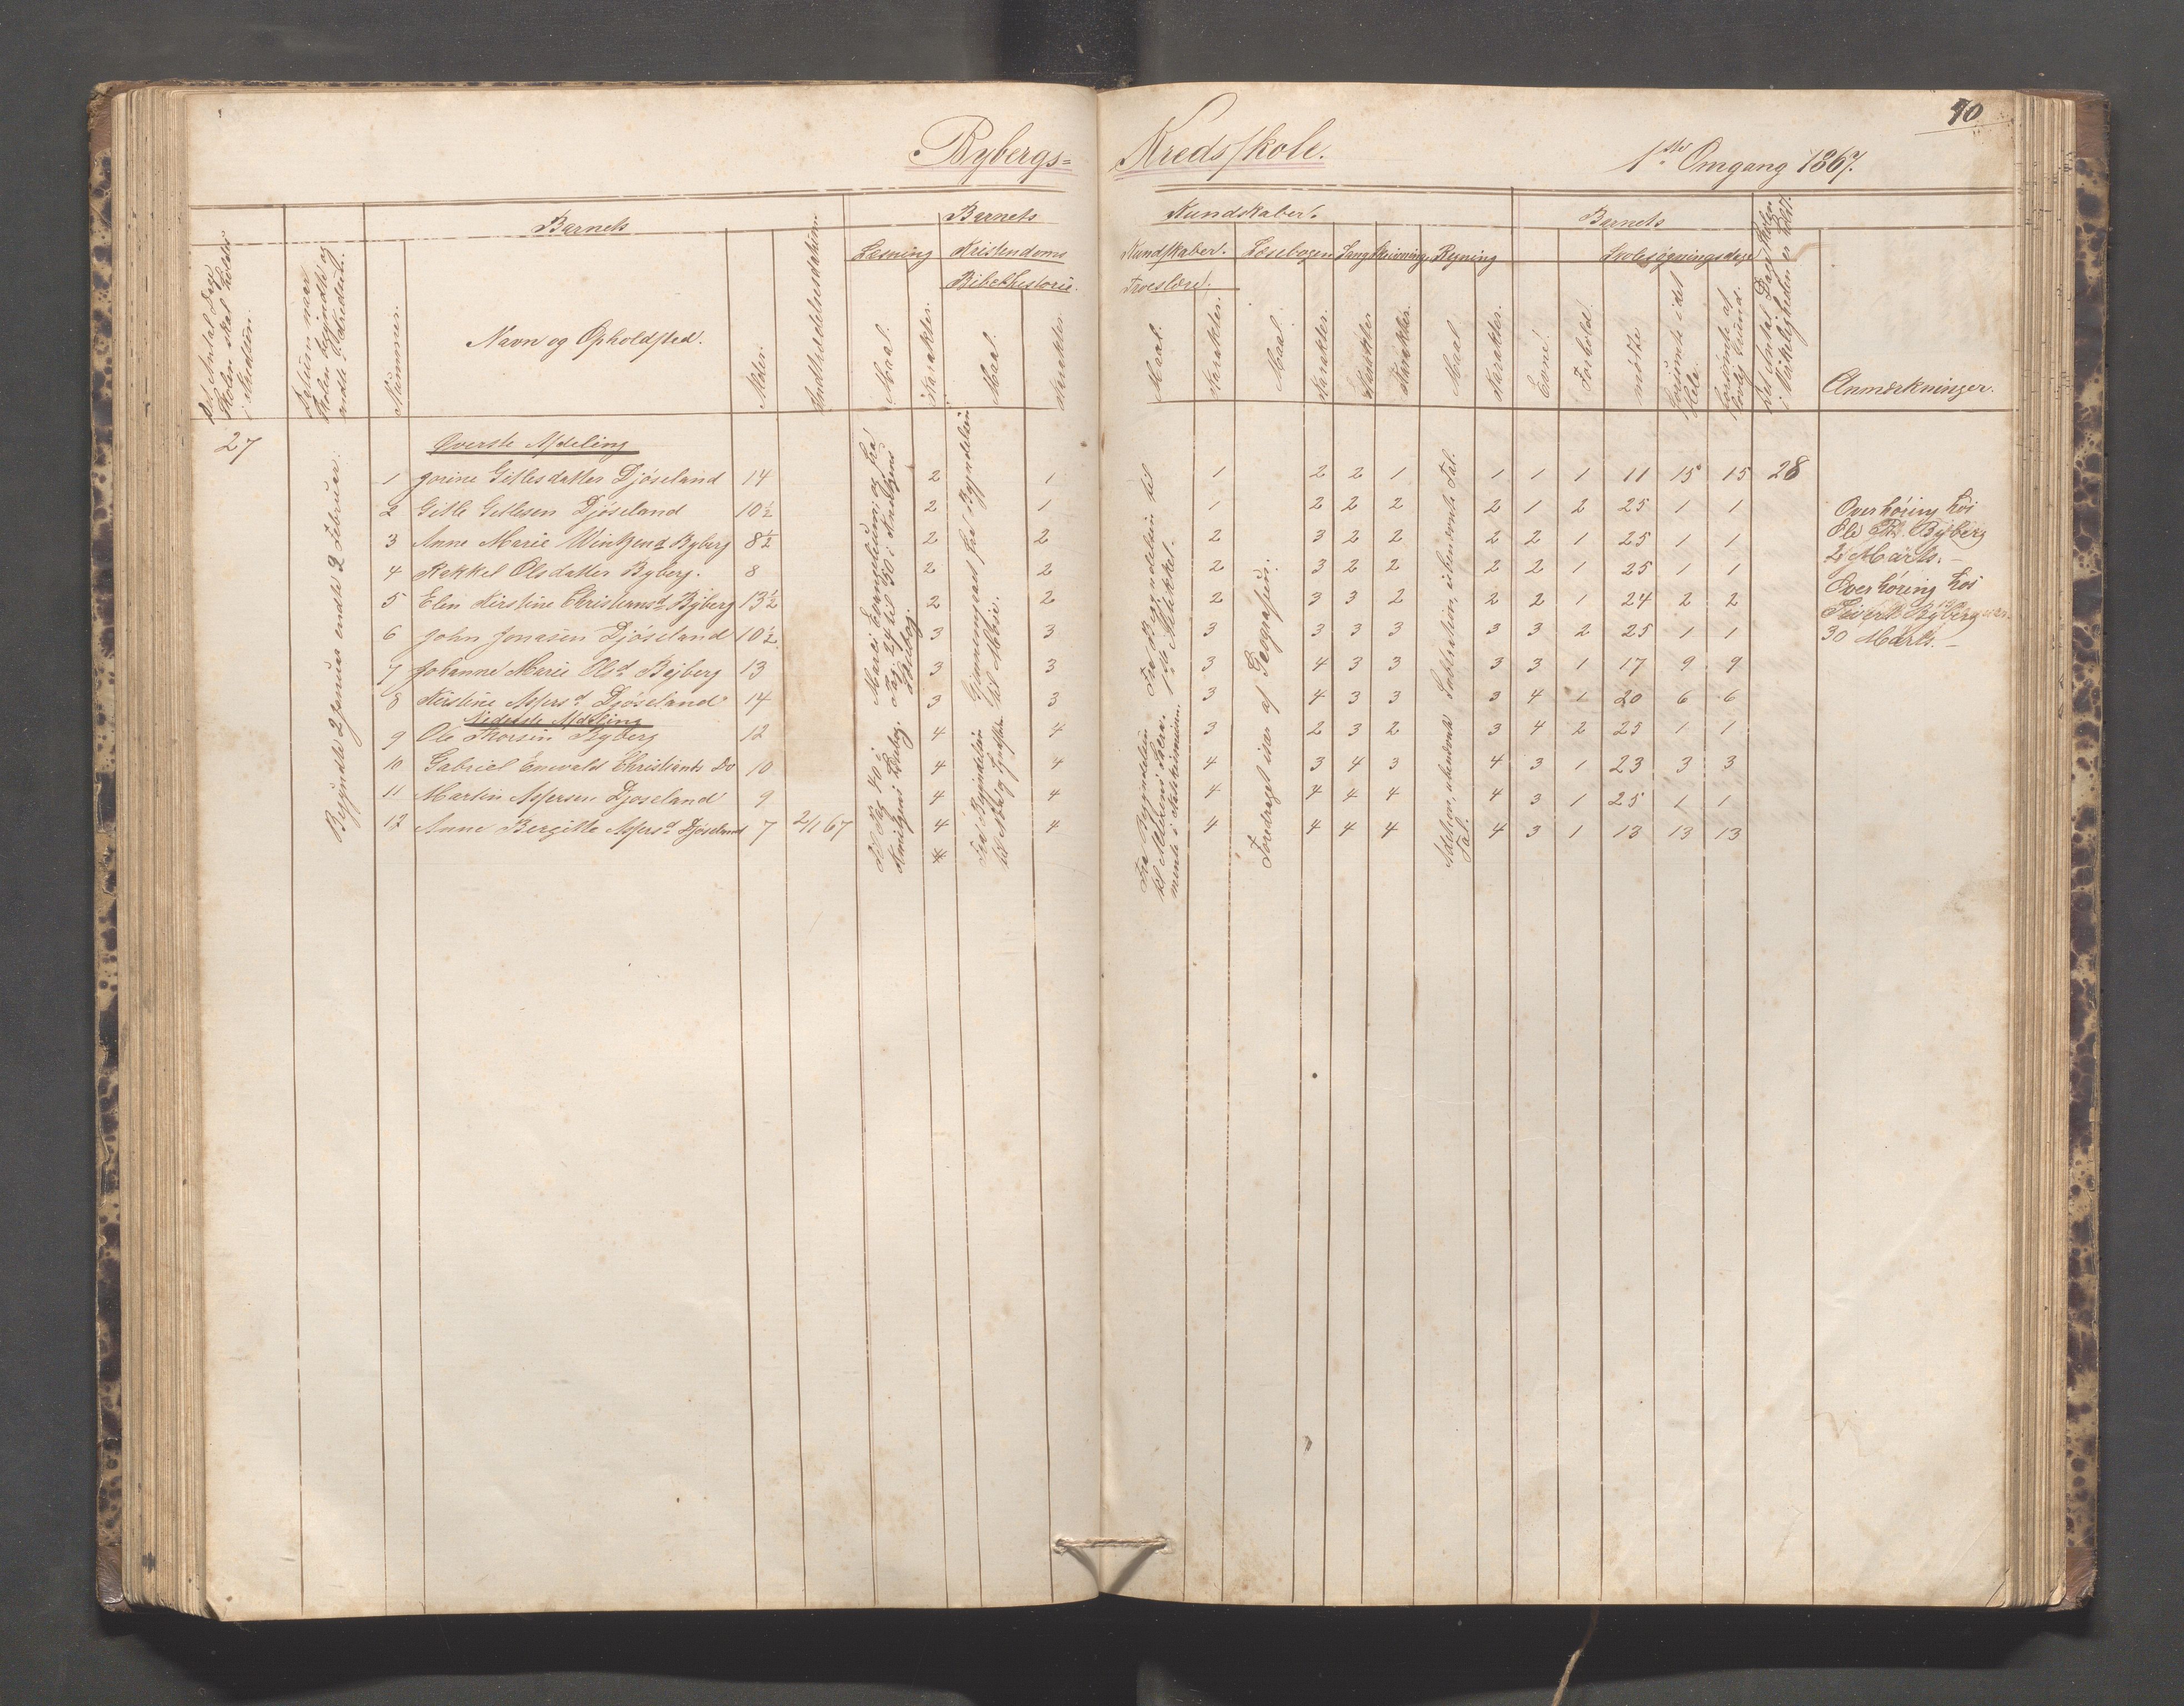 40
Bybergs- Kredsskole. 1ste Omgang 1867.
Barnets
Barnets
Kundskaber.
Barnets
Det Antal Dage Skolen skal holdes i Kredsen.
Datum naar Skolen begyndte og endte
Nummer.
Navn og Opholdssted.
Alder.
Indtrædelsesdatum.
Læsning
Maal.
Karakter.
Kristendoms
Bibelhistorie.
Maal.
Karakter.
Kundskaber.
Troeslære.
Maal.
Karakter.
Læsebogen
Maal.
Karakter.
Sang
Karakter.
Skrivning
Karakter.
Regning
Maal.
Karakter.
Evne.
Forhold.
Skolesøgningsdage
mødte
forsømte i det Hele.
forsømte af lovlig Grund.
Det Antal Dage Skolen i Virkeligheden er holdt.
Anmærkninger.
27
Begyndte 2 Januar endte 2 Februar.
Øverste Afdeling
1 Gorine Gitlesdatter Djøseland 14 2 1 1 2 2 1 1 1 1 11 15 15 28
2 Gitle Gitlesen Djøseland 10½ 2 1 1 2 2 2 2 1 2 25 1 1
3 Anne Marie Byberg 8½ 2 2 2 3 2 2 2 2 1 25 1 1
4 Rakkel Olsdatter Byberg. 8 2 2 2 3 2 2 2 2 1 25 1 1
5 Elen Kirstine Christiansd Byberg 13½ 2 2 2 3 3 2 2 2 1 24 2 2
6 John Jonasen Djøseland 10½ 3 3 3 3 3 3 3 3 2 25 1 1
7 Johanne Marie Olsd Byberg 13 3 3 3 4 3 3 3 3 1 17 9 9
8 Kirstine Aspersd Djøseland 14 3 3 3 4 3 3 3 4 1 20 6 6
Nederste Afdeling
9 Ole Thorsen Byberg 12 4 4 3 2 3 2 3 4 2 25 1 1
10 Gabriel Enevald Christians Do 10 4 4 4 3 4 3 4 3 1 23 3 3
11 Martin Aspersen Djøseland 9 4 4 4 4 4 4 4 3 1 25 1 1
12 Anne Bergitte Aspersd Djøseland 7 2/1 67 4 4 4 4 4 4 4 3 1 13 13 13
Marci Evangelium og fra
Pag. 24 til 50 i
Læsebog.
Til Pag 40 i
Gjennemgaaet fra Begyndelsen
til Moses.
Fra Begyndelsen
til
Fra Begyndelsen til
1ste Artikkel.
Fra Begyndelsen
Foredraget især af Geografien.
Subtraktion, ubenævnte Tal.
Addition, ubenævnte
Tal.
Overhøring hos
Ole Byberg
2 Marts. —
Overhøring hos
Sivert Byberg
30 Marts. —